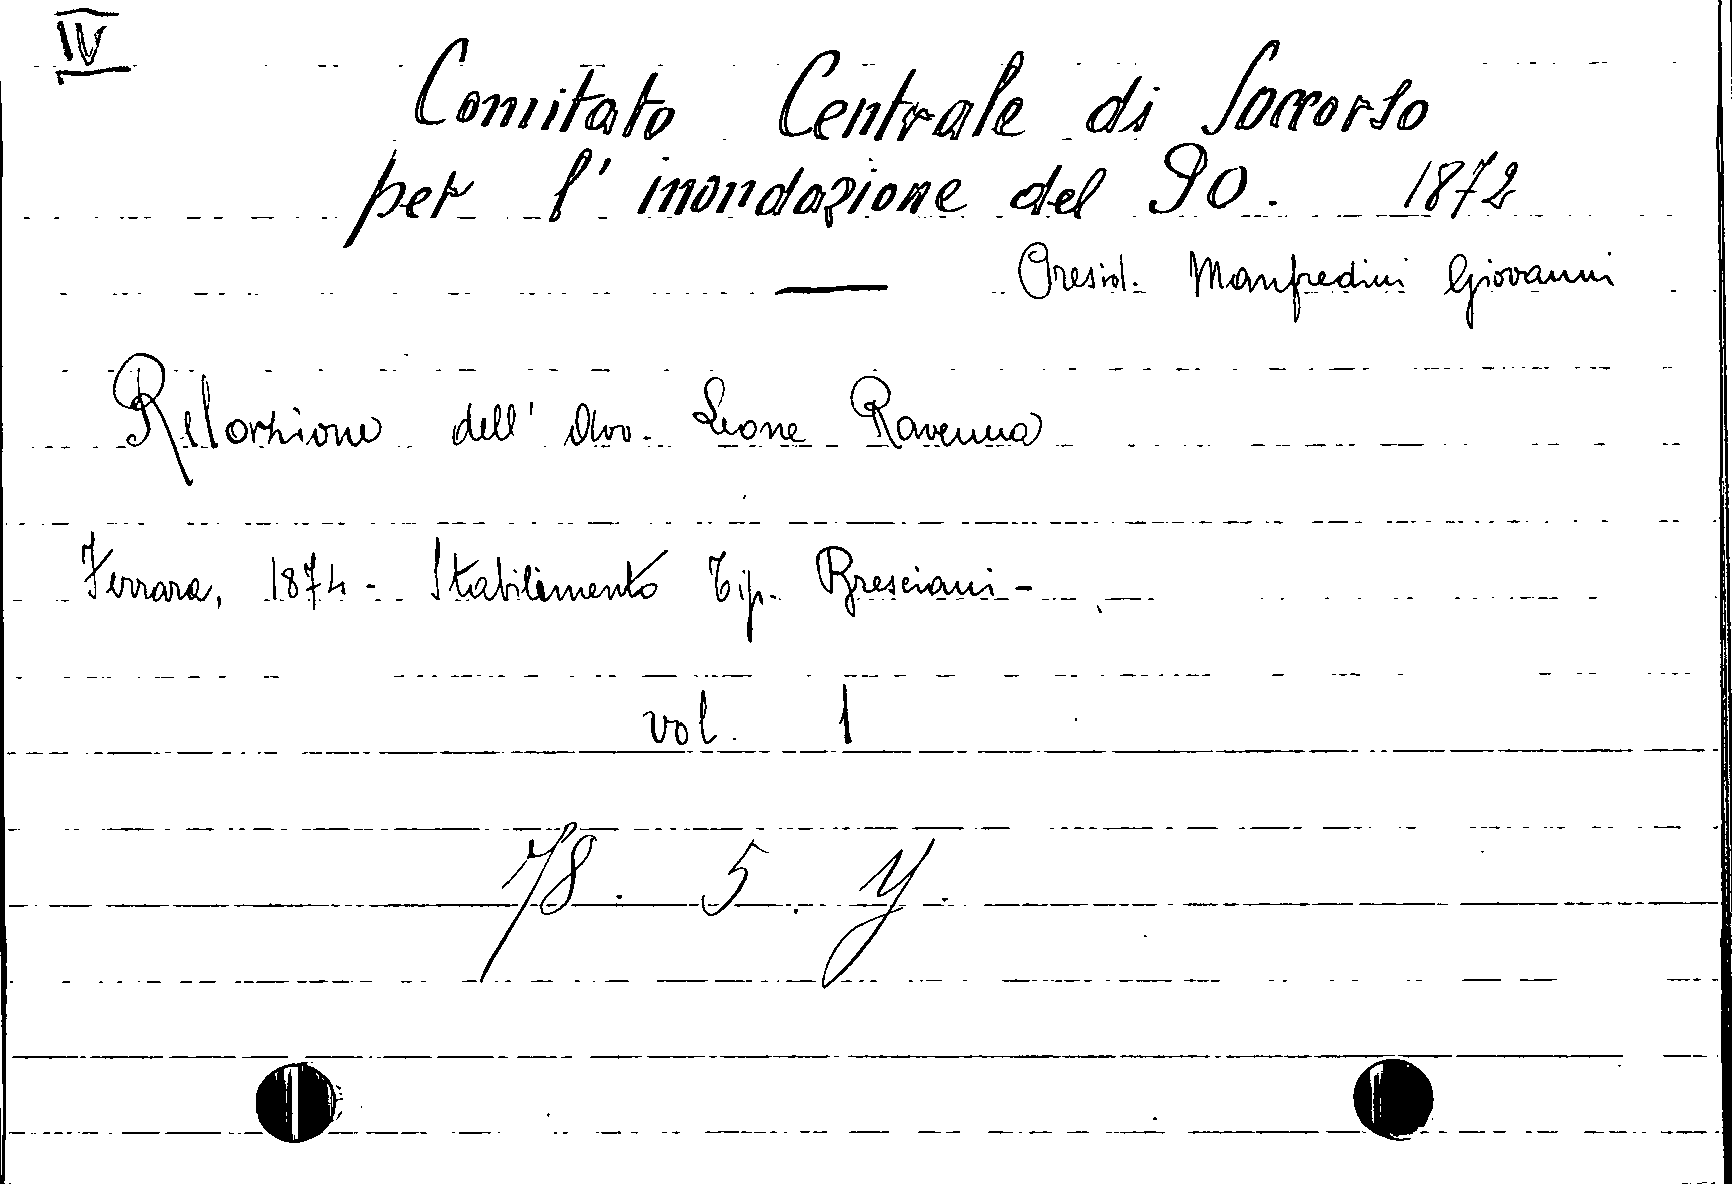 IV
Comitato Centrale di Soccorso
per l' inondazione del PO. 1872
Presid. Manfredini Giovanni
Relazione dell' Avv. Leone Ravenna
Ferrara, 1874 - Stabilimento Tip. Bresciani -
vol. 1
78. 5. Y.